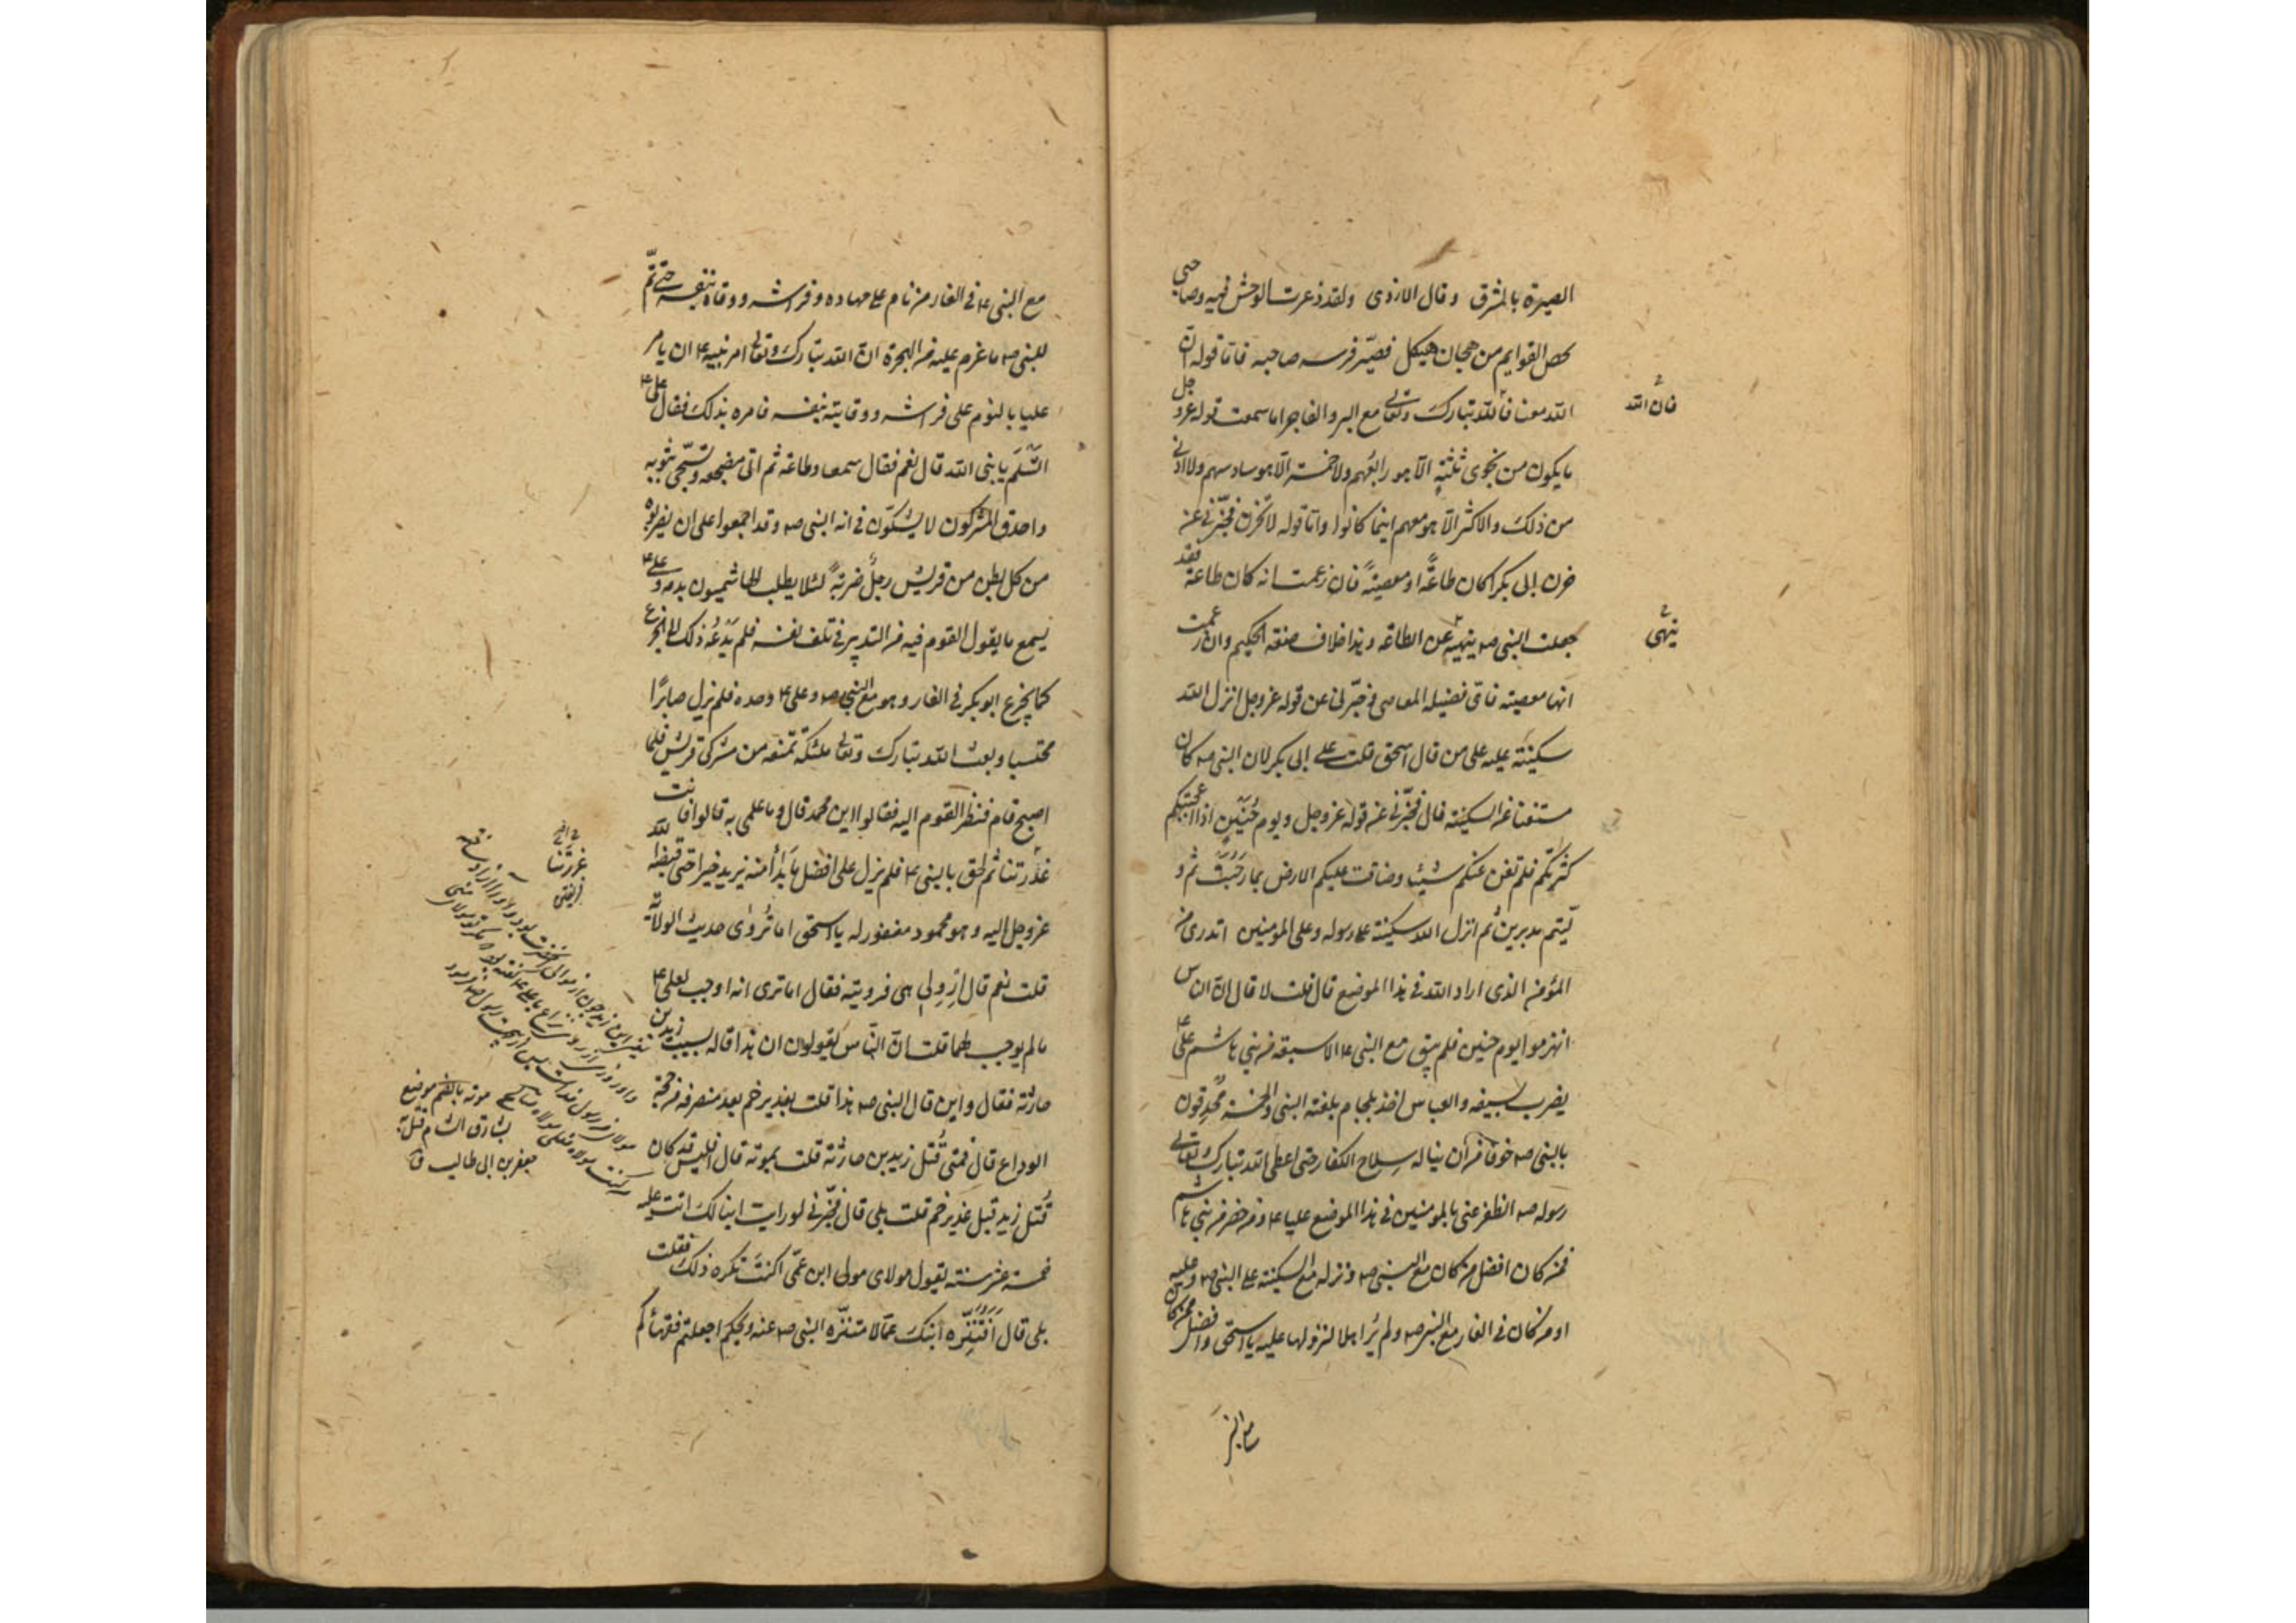 البصيرة بالمشرق وقال الازدى ولقد ذعرت الوحش فيه وصاحبى
محص القوايم من هجان هيكل فصيّر فرسه صاحبه فاما قوله انّ
الله معنا فالله تبارك وتعالى مع البر والفاجر اما سمعت قوله عز وجل
فان الله
ما يكون من نجوى ثلثة الّا هو رابعهم ولا خمسة الّا هو سادسهم ولا ادنى
من ذلك ولا اكثر الّا هو معهم اينما كانوا واما قوله لا تحزن فخبّرنى عن
حزن ابى بكر اكان طاعةً او معصيةً فان زعمت انه كان طاعة فقد
جعلت النبى صه ينهيه عن الطاعة وهذا خلاف صفة الحكيم وان زعمت
ينهى
انها معصيته فاى فضيلة للعاصى فخبّرنى عن قوله عز وجل انزل الله
سكينته عليه على من قال اسحق قلت على ابى بكر لان النبى صه كان
مستغنيا عن السكينة قال فخبّرنى عن قوله عز وجل ويوم حُنَيْنٍ اذ اعجبتكم
كثرتكم فلم تغن عنكم شيئا وضاقت عليكم الارض بما رَحُبَتْ ثم و
لّيتم مدبرين ثم انزل الله سكينته على رسوله وعلى المومنين اتدرى من
المؤمن الذى اراد الله فى هذا الموضع قال قلت لا قال ان الناس
انهزموا يوم حنين فلم يبق مع النبى ع الا سبعة من بنى هاشم علىّ ع
يضرب بسيفه والعباس اخذ بلجام بلغة النبى والخمسة مُحْدِقون
بالنبى صه خوفا من ان يناله سلاح الكفار حتى اعطى الله تبارك وتعالى
رسوله صه الظفر عنى بالمومنين فى هذا الموضع عليا ع ومن حضر من بنى هاشم
فمن كان افضل من كان مع النبى صه ونزله مع السكينة على النبى صه وعليه
او من كان فى الغار مع النبى صه ولم يُرَ اهلا لنزولها عليه يا اسحق وافضل من كان
مع النبى
مع النبى ع فى الغار من نام على مهاده وفراشه ووقاه بنفسه حتى تمّ
للنبى صه ما عزم عليه من الهجرة ان الله تبارك وتعالى امر نبيه ع ان يامر
عليا بالنوم على فراشه ووقايته بنفسه فامره بذلك فقال على ع
اتسلم يا نبى الله قال نعم فقال سمعا وطاعة ثم اتى مضجعه وتسجّى بثوبه
واحدق المشركون لا يشكّون فى انه النبى صه وقد اجمعوا على ان يضربوه
من كل بطن من قريش رجلٌ ضربةً لئلا يطلب الهاشميون بدمه وعلى ع
يسمع ما يقول القوم فيه من التدبير فى تلف نفسه فلم يَدْعُه ذلك الى الجزع
كما يجزع ابو بكر فى الغار وهو مع النبى صه وعلى ع وحده فلم يزل صابرًا
محتسبا وبعث الله تبارك وتعالى ملئكة تمنعه من مشركى قريش فلما
اصبح قام فنظر القوم اليه فقالوا اين محمد قال وما علمى به قالوا فانت
غدرتنا ثم لحق بالنبى ع فلم يزل على افضل ما بَدَأ منه يزيد خيرا حتى قبضه الله
عز وجل اليه وهو محمود مغفور له يا اسحق اما تُروى حديث الولاية
قلت نعم قال اروِ لى هى فرويته فقال اما ترى انه اوجب لعلى ع
ما لم يوجب لهما قلت ان النّاس يقولون ان هذا قاله بسبب زيد بن
حارثة فقال واين قال النبى صه هذا قلت بغدير خم بعد منصرفه من حجة
الوداع قال فمتى قُتل زيد بن حارثة قلت بموته قال افليس قد كان
قُتل زيد قبل غدير خم قلت بلى قال فخبّرنى لو رايت ابنا لك اتت عليه
خمسة عشر سنة يقول مولاى مولى ابن عمّى اكنت تكره ذلك فقلت
بلى قال اَفَتُنَزِّه ابنك عمّا لا متنزّه النبى صه عنه ويحكم اجعلتم فقهائكم
غررتنا
موته بالضم موضع
بمشارق الشام قتل به
جعفر بن ابى طالب ق